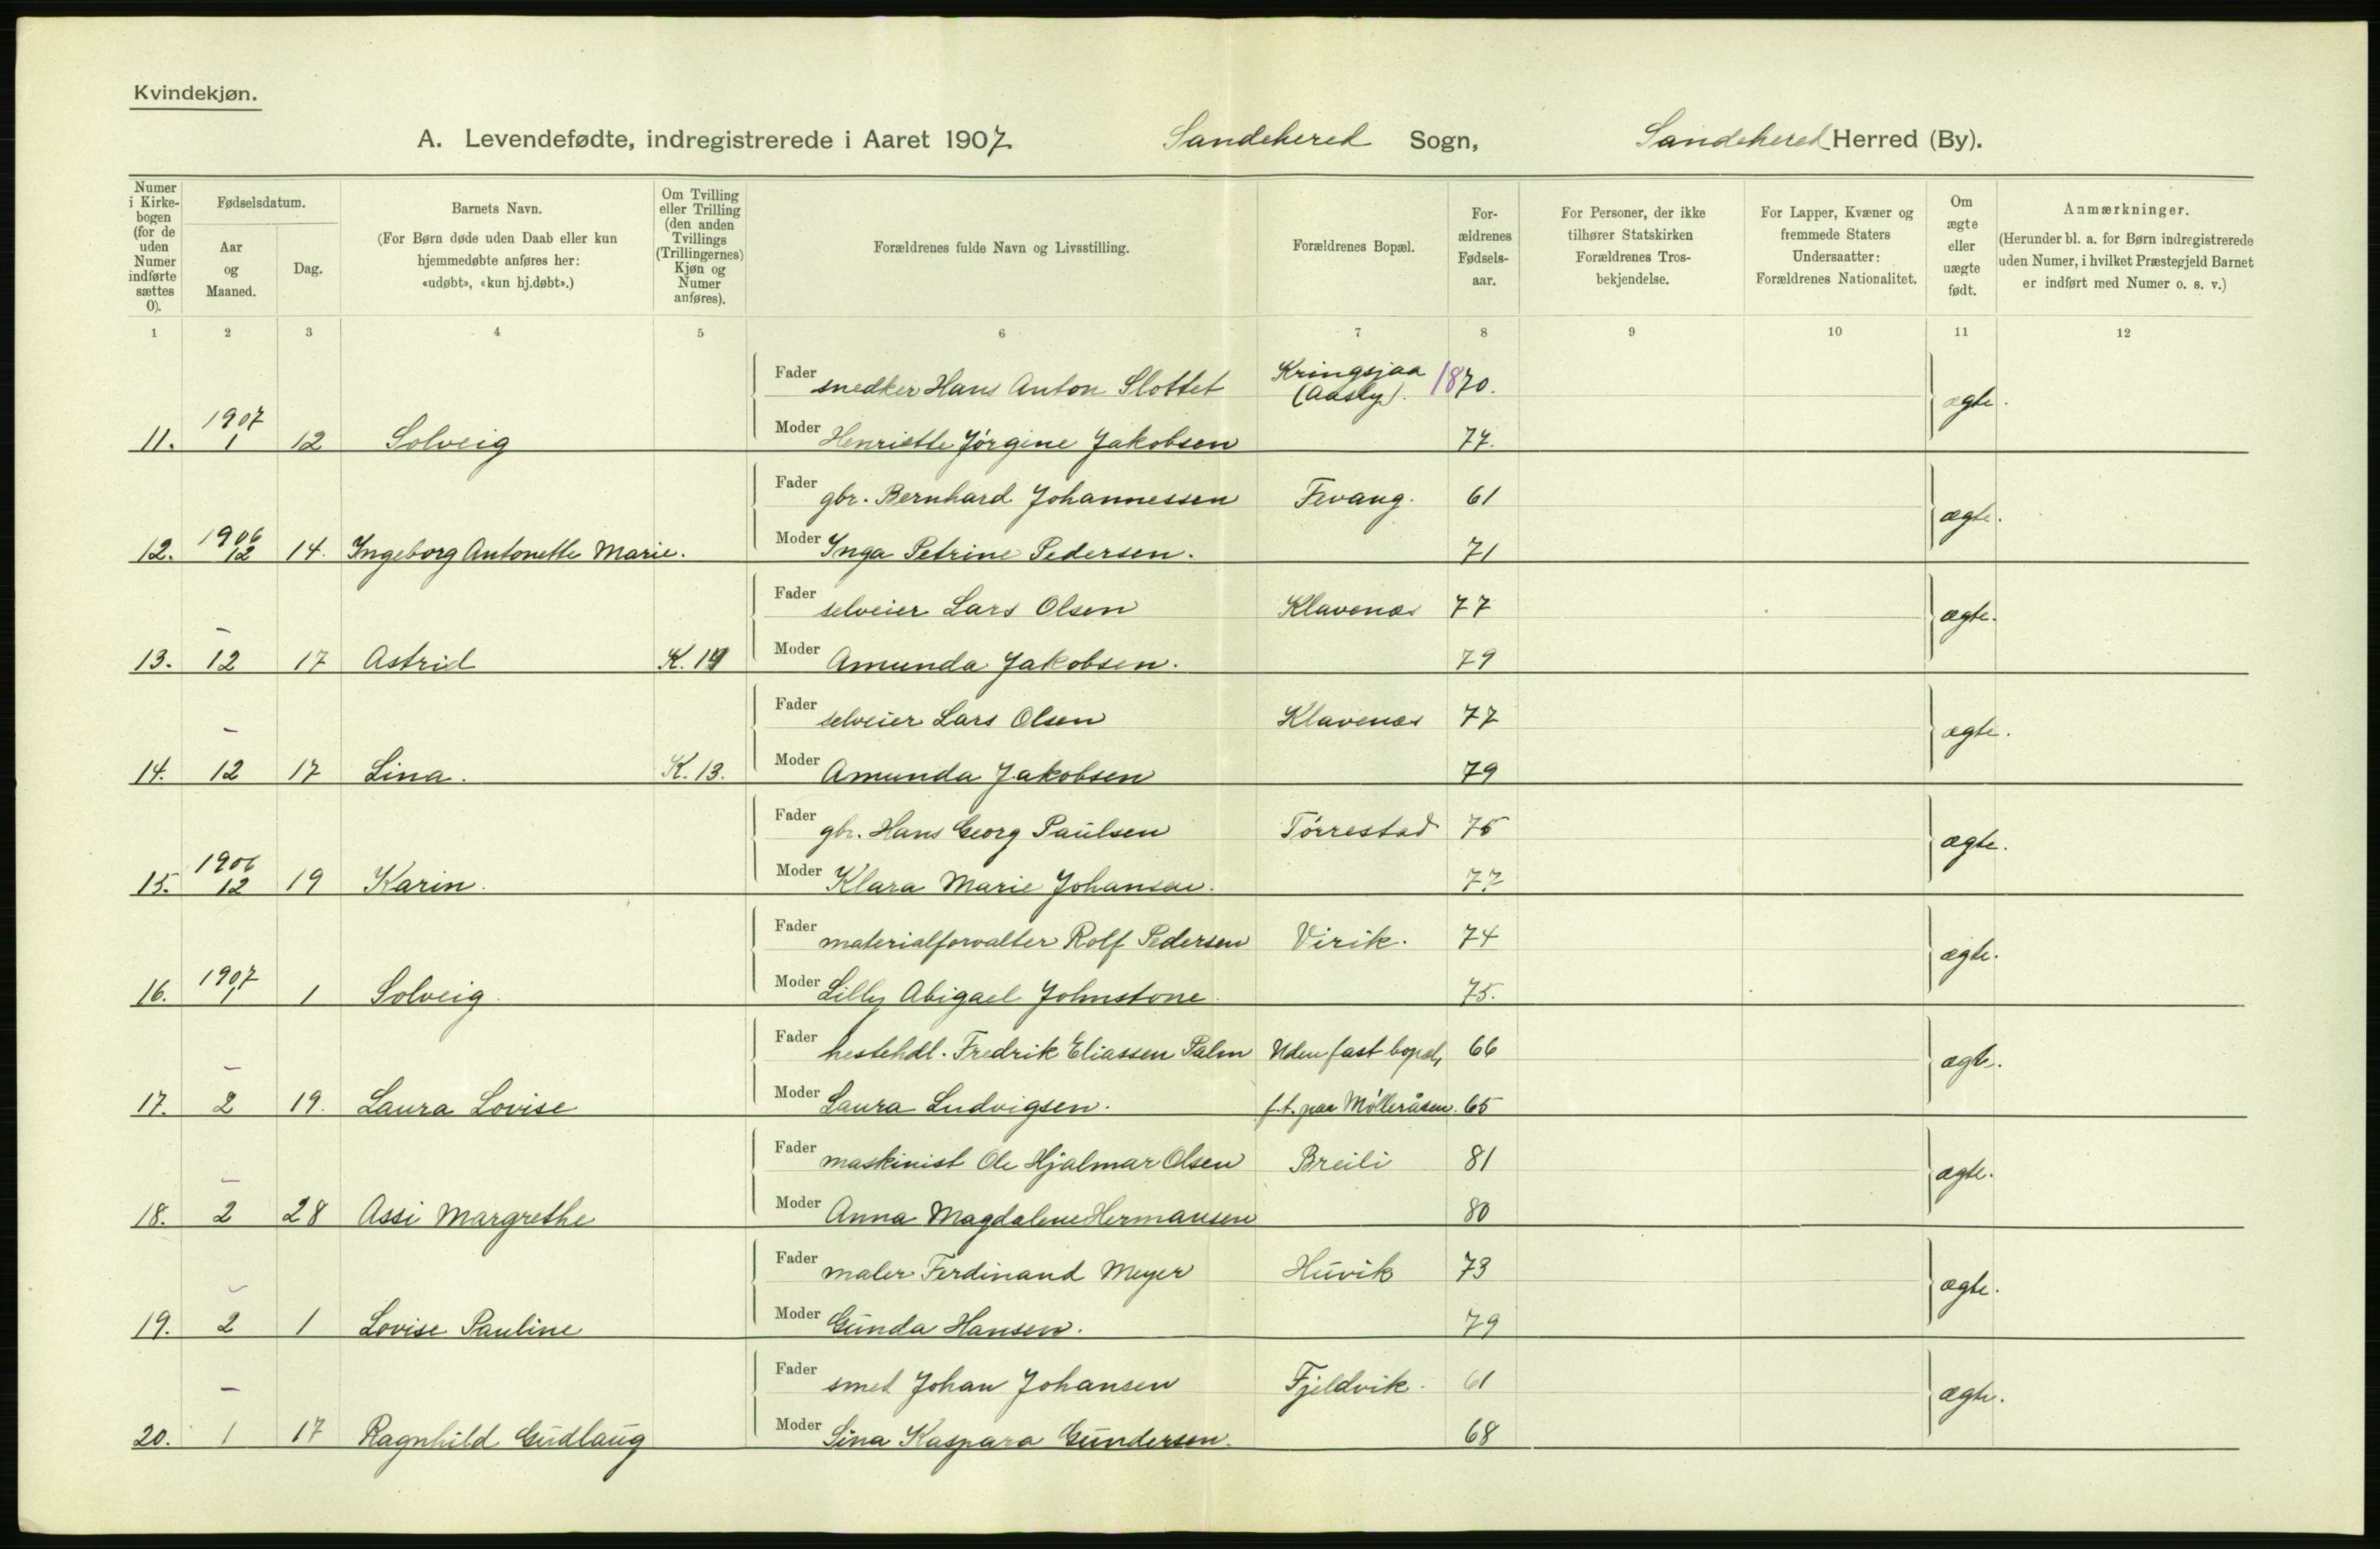 Kvindekjøn.
A. Levendefødte, indregistrerede i Aaret 1907 Sandehered Sogn, Sandehered Herred (By).
Numer i Kirke-bogen (for de uden Numer indførte sættes 0).
Fødselsdatum.
Aar og Maaned.
Dag.
Barnets Navn.
(For Børn døde uden Daab eller kun hjemmedøbte anføres her: «udøbt», «kun hj.døbt».)
Om Tvilling eller Trilling (den anden Tvillings (Trillingernes) Kjøn og Numer anføres).
Forældrenes fulde Navn og Livsstilling.
Forældrenes Bopæl.
For-ældrenes Fødsels-aar.
For Personer, der ikke tilhører Statskirken Forældrenes Tros-bekjendelse.
For Lapper, Kvæner og fremmede Staters Undersaatter: Forældrenes Nationalitet.
Om ægte eller uægte født.
Anmærkninger.
(Herunder bl. a. for Børn indregistrerede uden Numer, i hvilket Præstegjeld Barnet er indført med Numer o. s. v.)
1 2 3 4 5 6 7 8 9 10 11 12
Fader snedker Hans Anton Slottet Kringsjaa (Aasly). 1870. ægte.
11. 1907 1 12 Solveig Moder Henriette Jörgine Jakobsen 77.
Fader gbr. Bernhard Johannessen Fevang. 61 ægte.
12. 1906 12 14. Ingeborg Antonette Marie. Moder Inga Petrine Pedersen. 71
Fader selveier Lars Olsen Klavenæs 77 ægte.
13. – 12 17 Astrid K. 14 Moder Amunda Jakobsen. 79
Fader selveier Lars Olsen Klavenæs 77 ægte.
14. – 12 17 Lina. K. 13. Moder Amunda Jakobsen 79
Fader gbr. Hans Georg Paulsen Törrestad 75 ægte.
15. 1906 12 19 Karin. Moder Klara Marie Johansen. 77
Fader materialforvalter Rolf Pedersen Virik. 74 ægte.
16. 1907 1 1 Solveig. Moder Lilly Abigael Johnstone. 75.
Fader hestehdl. Fredrik Eliassen Palm Uden fast bopæl, 66 ægte.
17. – 2 19. Laura Lovise Moder Laura Ludvigsen. f.t. paa Mölleråsen. 65
Fader maskinist Ole Hjalmar Olsen Breili 81 ægte.
18. – 2 28 Assi Margrethe Moder Anna Magdalene Hermansen 80
Fader maler Ferdinand Meyer Huvik 73 ægte.
19. – 2 1 Lovise Pauline Moder Gunda Hansen. 79
Fader smed Johan Johansen Fjeldvik. 61 ægte.
20. – 1 17 Ragnhild Gudlaug Moder Sina Kaspara Gundersen. 68